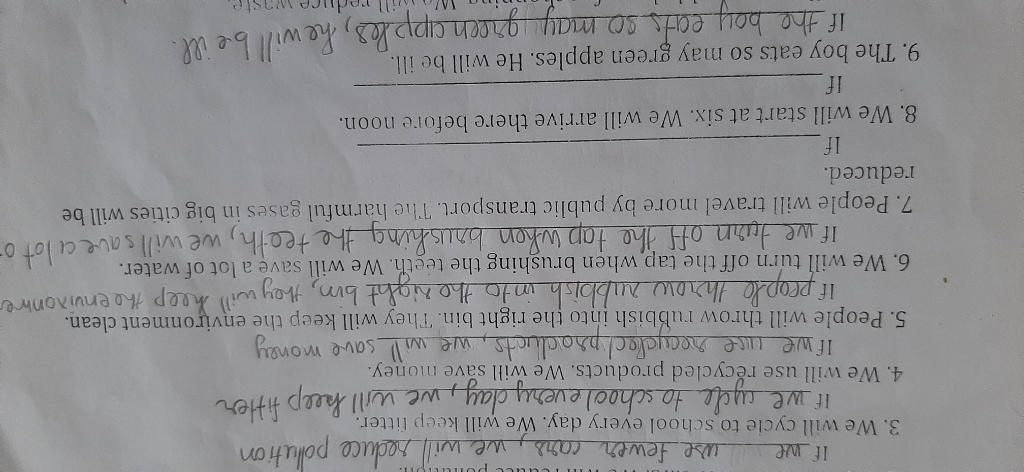 If we use fewer cars, we will reduce pollution
3. We will cycle to school every day. We will keep fitter.
If we cycle to school every day, we will keep fitter
4. We will use recycled products. We will save money.
If we use recycled products, we will save money
5. People will throw rubbish into the right bin. They will keep the environment clean.
If people throw rubbish into the right bin, they will keep the environme
6. We will turn off the tap when brushing the teeth. We will save a lot of water.
If we turn off the tap when brushing the teeth, we will save a lot o
7. People will travel more by public transport. The harmful gases in big cities will be
reduced.
If
8. We will start at six. We will arrive there before noon.
If
9. The boy eats so may green apples. He will be ill.
If the boy eats so may green apples, he will be ill.
We will reduce waste.